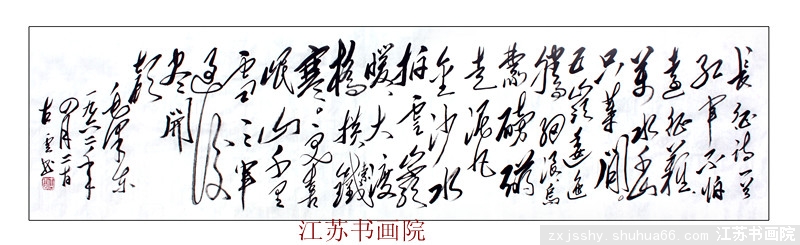 长征诗一首
红军不怕
遠征難
萬水千山
只等閒
五嶺逶迤
腾细浪烏
蒙磅礴
走泥丸
金沙水
拍雲崖
暖大渡
橋横鐵索
寒更喜
岷山千里
雪三軍
过後
尽開
颜
毛泽东
一九六二年
四月二十日
江苏书画院
zxjsshy.shuhua66.com 江苏书画院